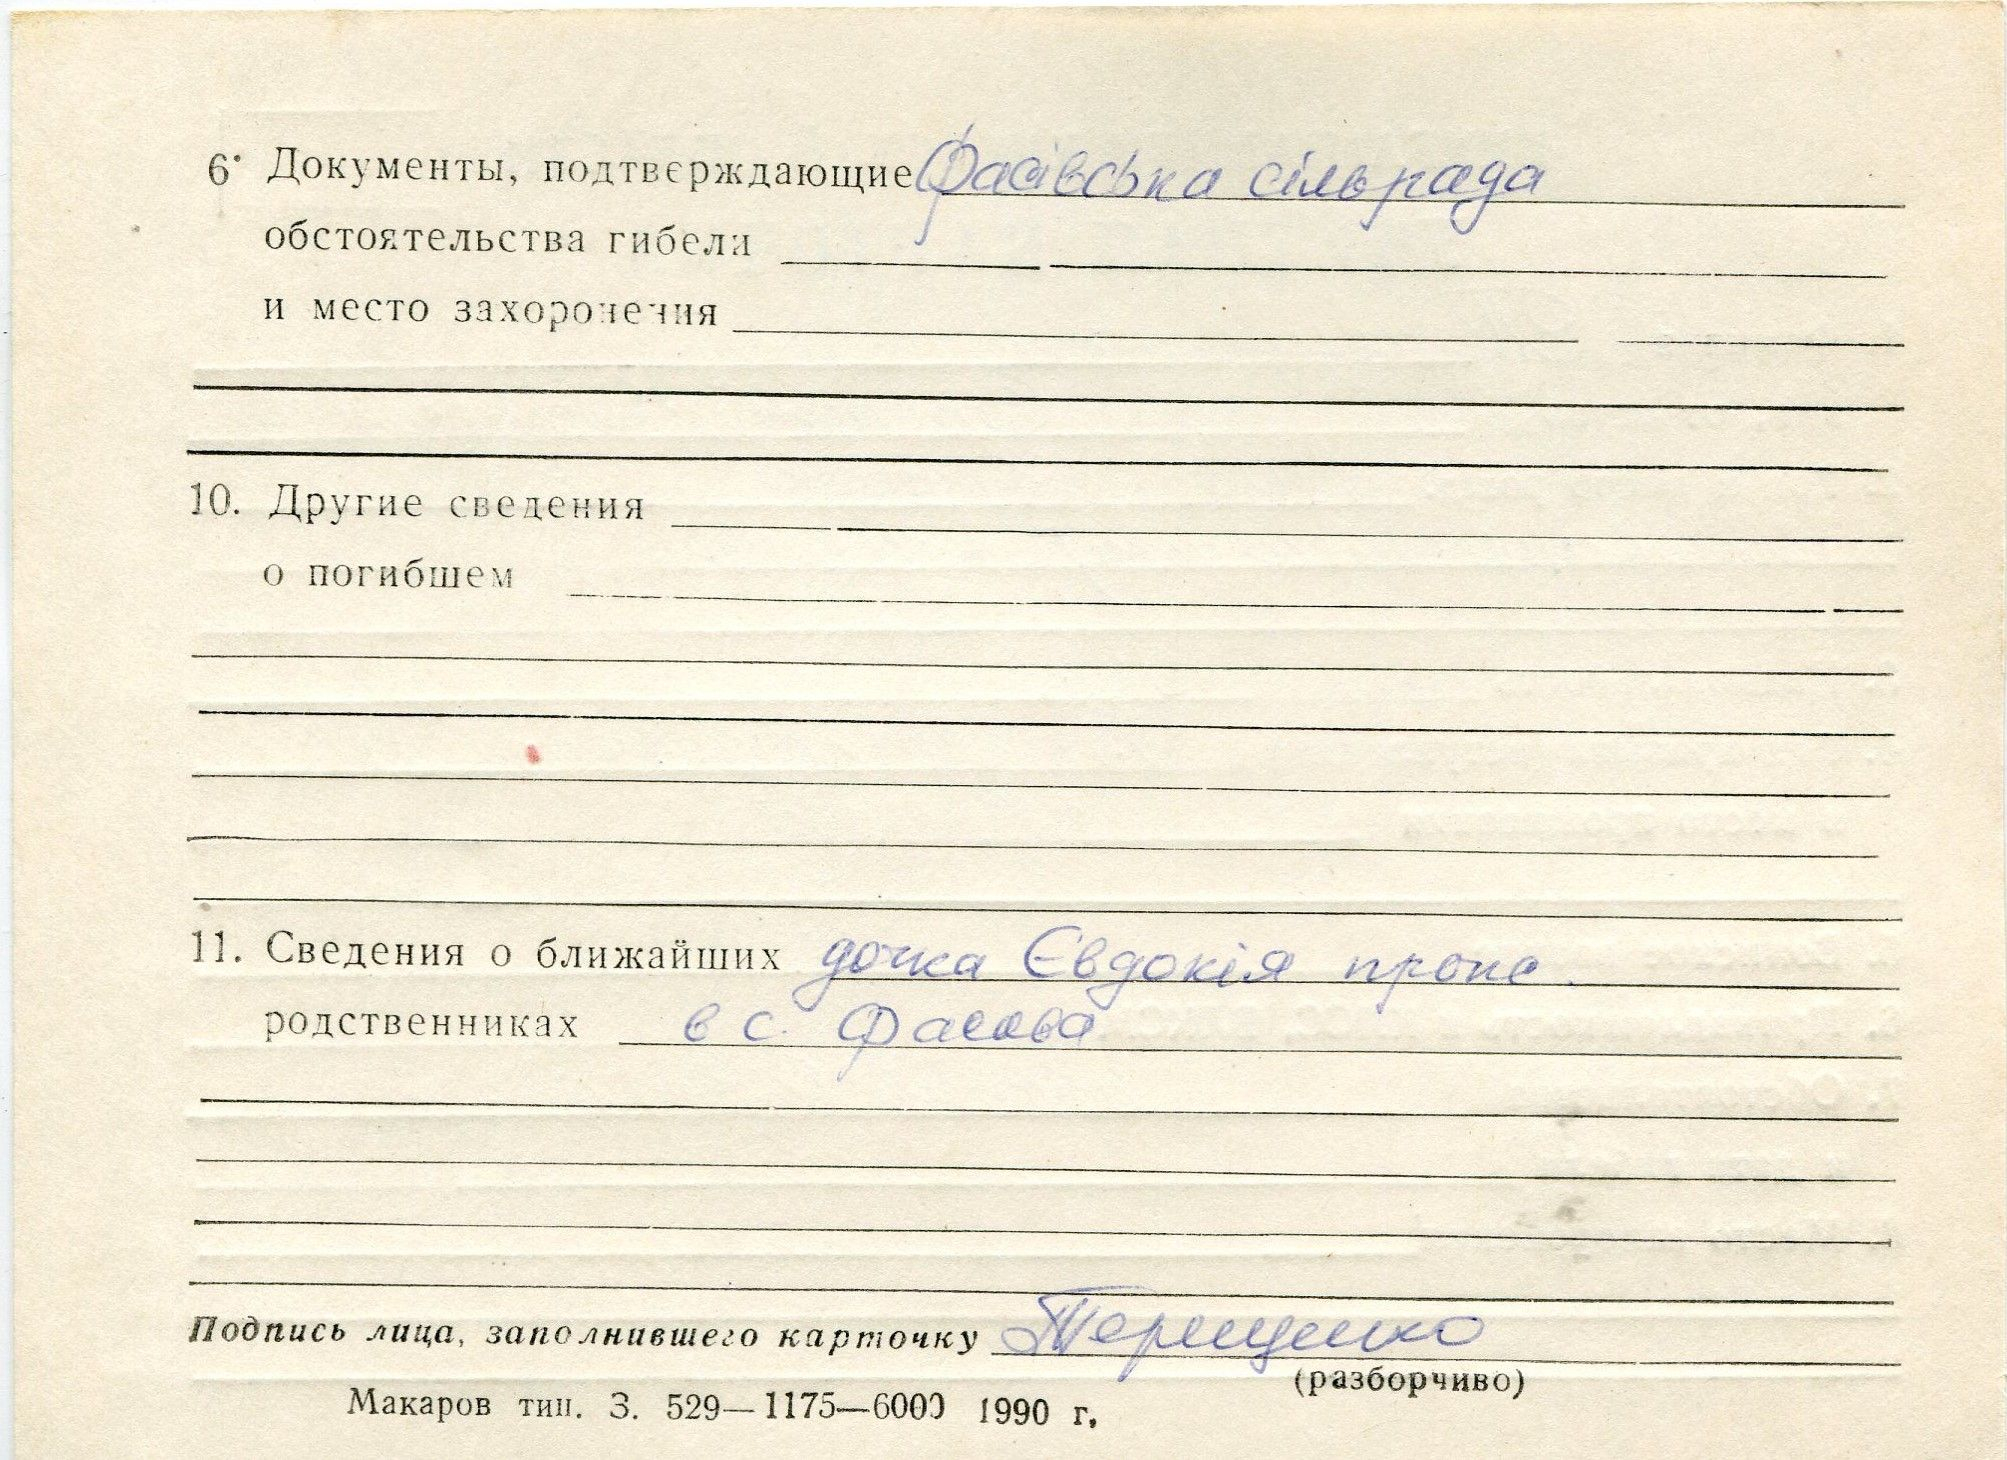 6. Документы, подтверждающие Фасівська сільрада
обстоятельства гибели
и место захоронения
10. Другие сведения
о погибшем
11. Сведения о ближайших дочка Євдокія прож.
родственниках в с. Фасова
Подпись лица, заполнившего карточку Терещенко
(разборчиво)
Макаров тип. З. 529—1175—6000 1990 г.